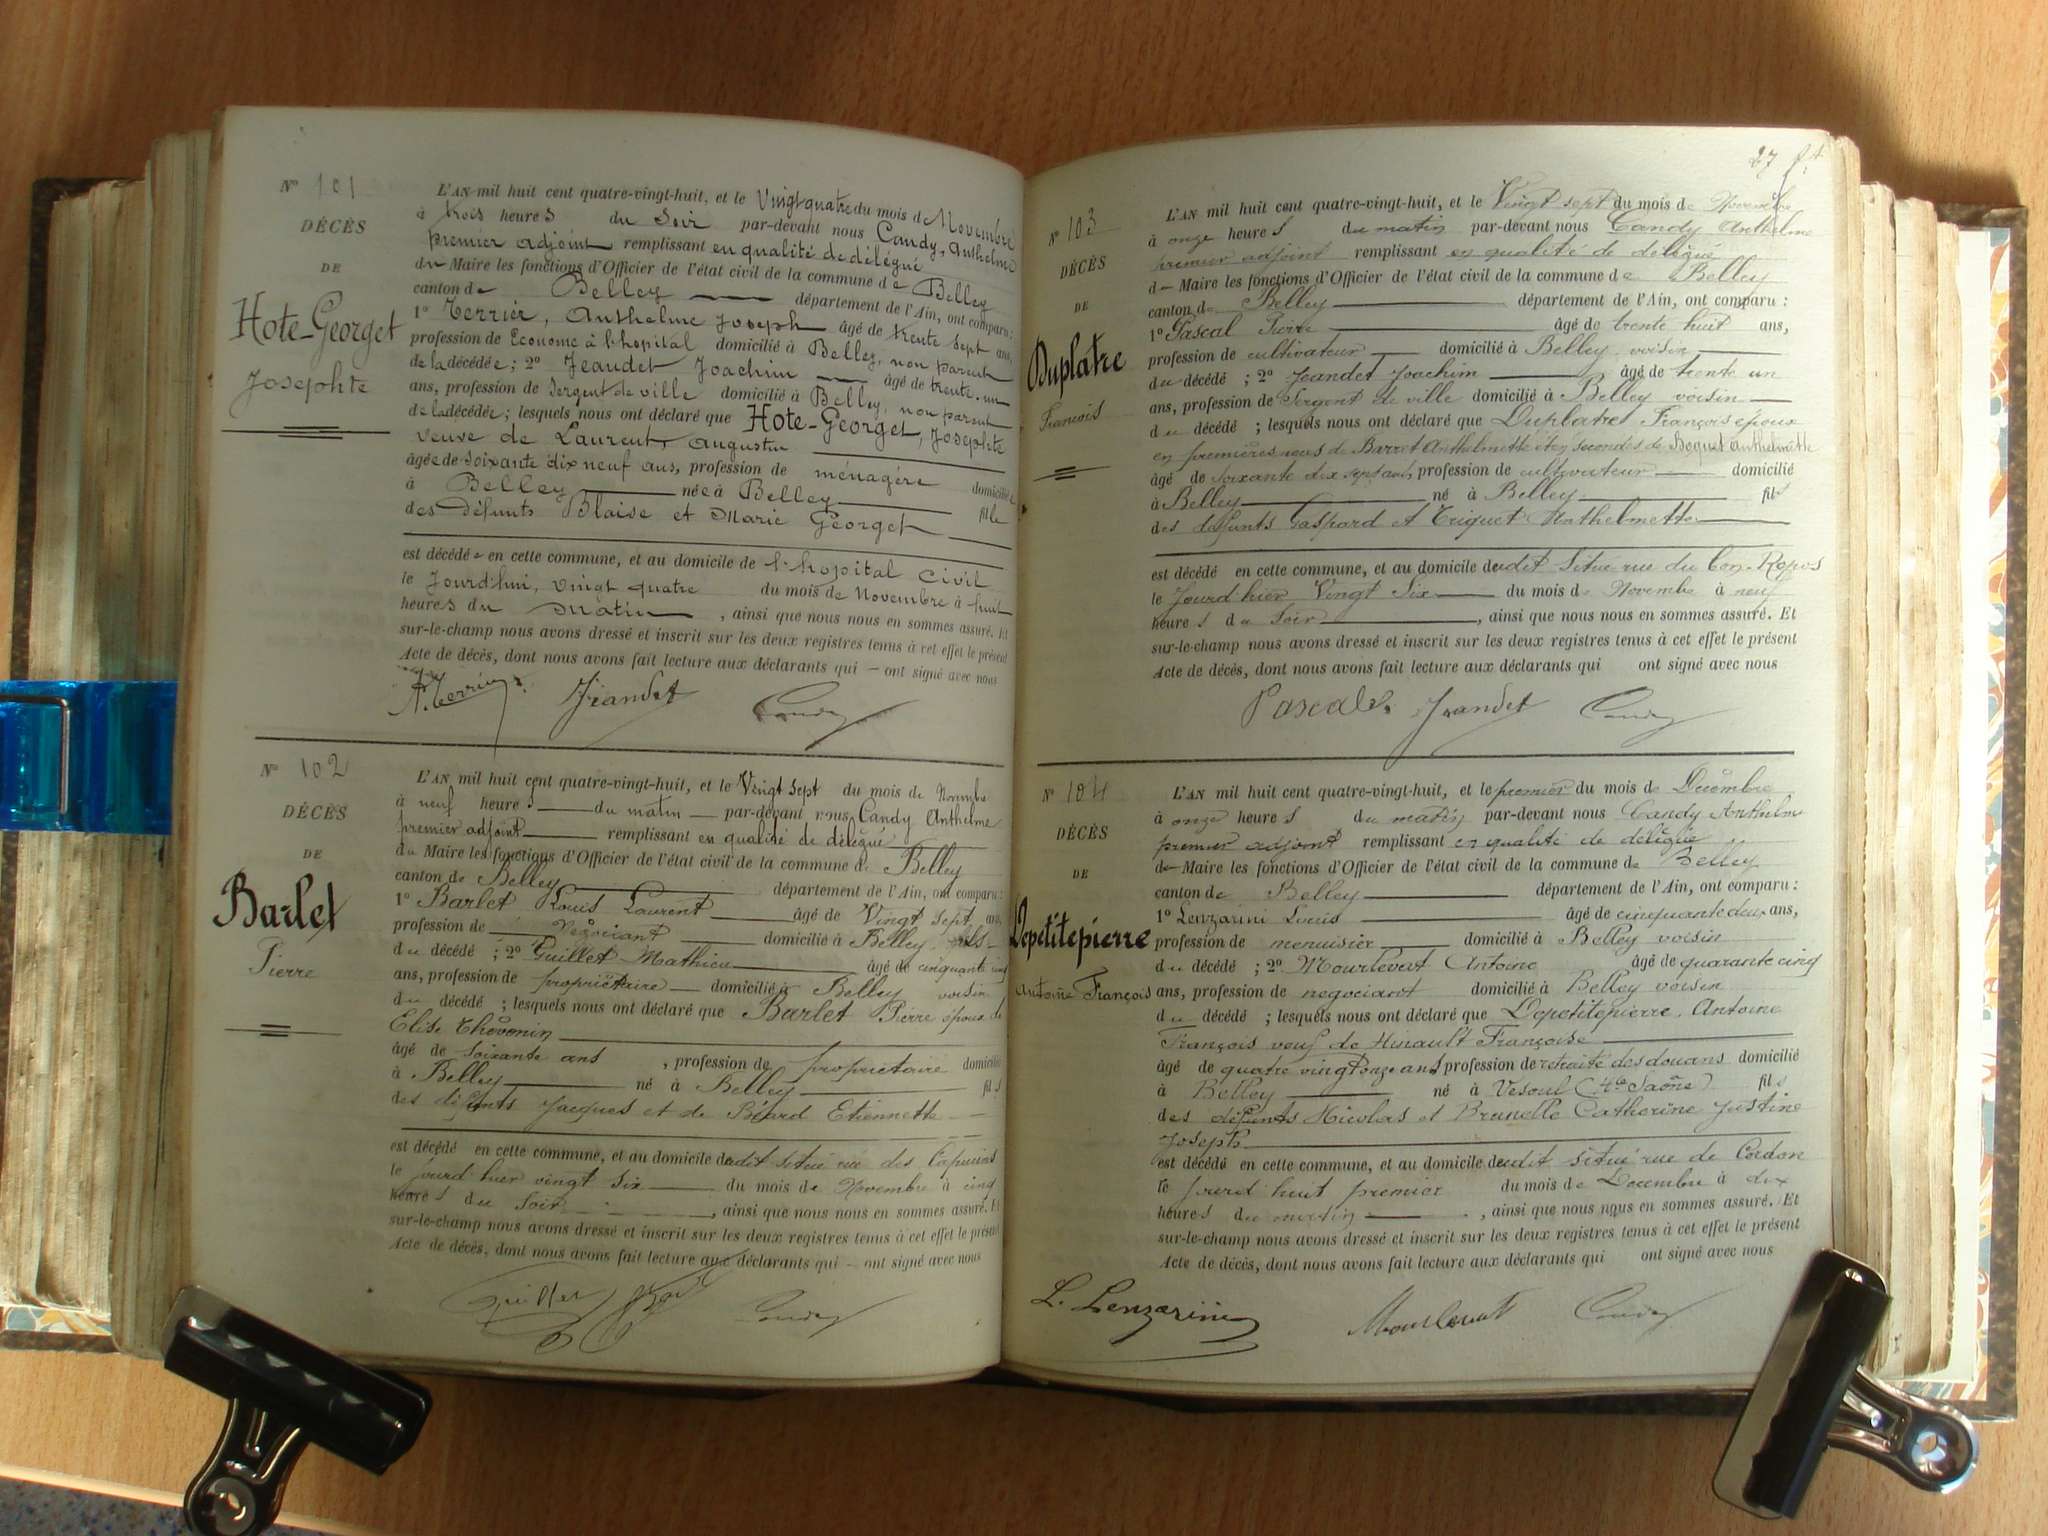 Nº 101
DÉCÈS
DE
Hote-Georget
Josephte
L'AN mil huit cent quatre-vingt-huit, et le Vingt quatre du mois de Novembre
à trois heures du Soir par-devant nous Candy, Anthelme
premier adjoint remplissant en qualité de délégué
du Maire les fonctions d'Officier de l'état civil de la commune de Belley
canton de Belley département de l'Ain, ont comparu :
1º Terrier, Anthelme Joseph âgé de trente sept ans,
profession de Econome à l'hopital domicilié à Belley, non parent
de la décédée ; 2º Jeandet Joachim âgé de trente-un
ans, profession de Sergent de ville domicilié à Belley, non parent
de la décédée ; lesquels nous ont déclaré que Hote-Georget, Josephte
veuve de Laurent, Augustin
âgée de Soixante dix neuf ans, profession de ménagère domiciliée
à Belley née à Belley fille
des défunts Blaise et Marie Georget
est décédée en cette commune, et au domicile de l'hopital civil
le Jourd'hui, vingt quatre du mois de Novembre à huit
heures du Matin, ainsi que nous nous en sommes assuré. Et
sur-le-champ nous avons dressé et inscrit sur les deux registres tenus à cet effet le présent
Acte de décès, dont nous avons fait lecture aux déclarants qui — ont signé avec nous
A. Terrier Jeandet Candy
Nº 102
DÉCÈS
DE
Barlet
Pierre
L'AN mil huit cent quatre-vingt-huit, et le Vingt sept du mois de Novembre
à neuf heures du matin par-devant nous Candy Anthelme
premier adjoint remplissant en qualité de délégué
du Maire les fonctions d'Officier de l'état civil de la commune de Belley
canton de Belley département de l'Ain, ont comparu :
1º Barlet Louis Laurent âgé de Vingt sept ans,
profession de Négociant domicilié à Belley fils
du décédé ; 2º Guillet Mathieu âgé de cinquante cinq
ans, profession de propriétaire domicilié à Belley voisin
du décédé ; lesquels nous ont déclaré que Barlet Pierre époux de
Elise Thévenin
âgé de soixante ans, profession de propriétaire domicilié
à Belley né à Belley fils
des défunts Jacques et de Béard Etiennette
est décédé en cette commune, et au domicile dudit situé rue des Capucins
le jourd'hier vingt six du mois de Novembre à cinq
heures du Soir, ainsi que nous nous en sommes assuré. Et
sur-le-champ nous avons dressé et inscrit sur les deux registres tenus à cet effet le présent
Acte de décès, dont nous avons fait lecture aux déclarants qui — ont signé avec nous
Guillet Candy
27
Nº 103
DÉCÈS
DE
Duplatre
François
L'AN mil huit cent quatre-vingt-huit, et le Vingt sept du mois de Novembre
à onze heures du matin par-devant nous Candy Anthelme
premier adjoint remplissant en qualité de délégué
du Maire les fonctions d'Officier de l'état civil de la commune de Belley
canton de Belley département de l'Ain, ont comparu :
1º Pascal Pierre âgé de trente huit ans,
profession de cultivateur domicilié à Belley voisin
du décédé ; 2º Jeandet Joachim âgé de trente un
ans, profession de Sergent de ville domicilié à Belley voisin
du décédé ; lesquels nous ont déclaré que Duplatre François époux
en premières noces de Barret Anthelmette et en secondes de Boquet Anthelmette
âgé de soixante dix sept ans, profession de cultivateur domicilié
à Belley né à Belley fils
des défunts Gaspard et Triquet Anthelmette
est décédé en cette commune, et au domicile dudit situé rue du Bon-Repos
le Jourd'hier Vingt Six du mois de Novembre à neuf
heures du Soir, ainsi que nous nous en sommes assuré. Et
sur-le-champ nous avons dressé et inscrit sur les deux registres tenus à cet effet le présent
Acte de décès, dont nous avons fait lecture aux déclarants qui ont signé avec nous
Pascal Jeandet Candy
Nº 104
DÉCÈS
DE
Depetitepierre
Antoine François
L'AN mil huit cent quatre-vingt-huit, et le premier du mois de Décembre
à onze heures du matin par-devant nous Candy Anthelme
premier adjoint remplissant en qualité de délégué
du Maire les fonctions d'Officier de l'état civil de la commune de Belley
canton de Belley département de l'Ain, ont comparu :
1º Lenzarini Louis âgé de cinquante deux ans,
profession de menuisier domicilié à Belley voisin
du décédé ; 2º Mourlevat Antoine âgé de quarante cinq
ans, profession de negociant domicilié à Belley voisin
du décédé ; lesquels nous ont déclaré que Depetitepierre, Antoine
François veuf de Hinault Françoise
âgé de quatre vingt onze ans profession de retraité des douans domicilié
à Belley né à Vesoul (Hte Saône) fils
des défunts Nicolas et Brunelle Catherine Justine
Joseph
est décédé en cette commune, et au domicile dudit situé rue de Cordon
le jourd'huit premier du mois de Decembre à dix
heures du matin, ainsi que nous nous en sommes assuré. Et
sur-le-champ nous avons dressé et inscrit sur les deux registres tenus à cet effet le présent
Acte de décès, dont nous avons fait lecture aux déclarants qui ont signé avec nous
L. Lenzarini Mourlevat Candy